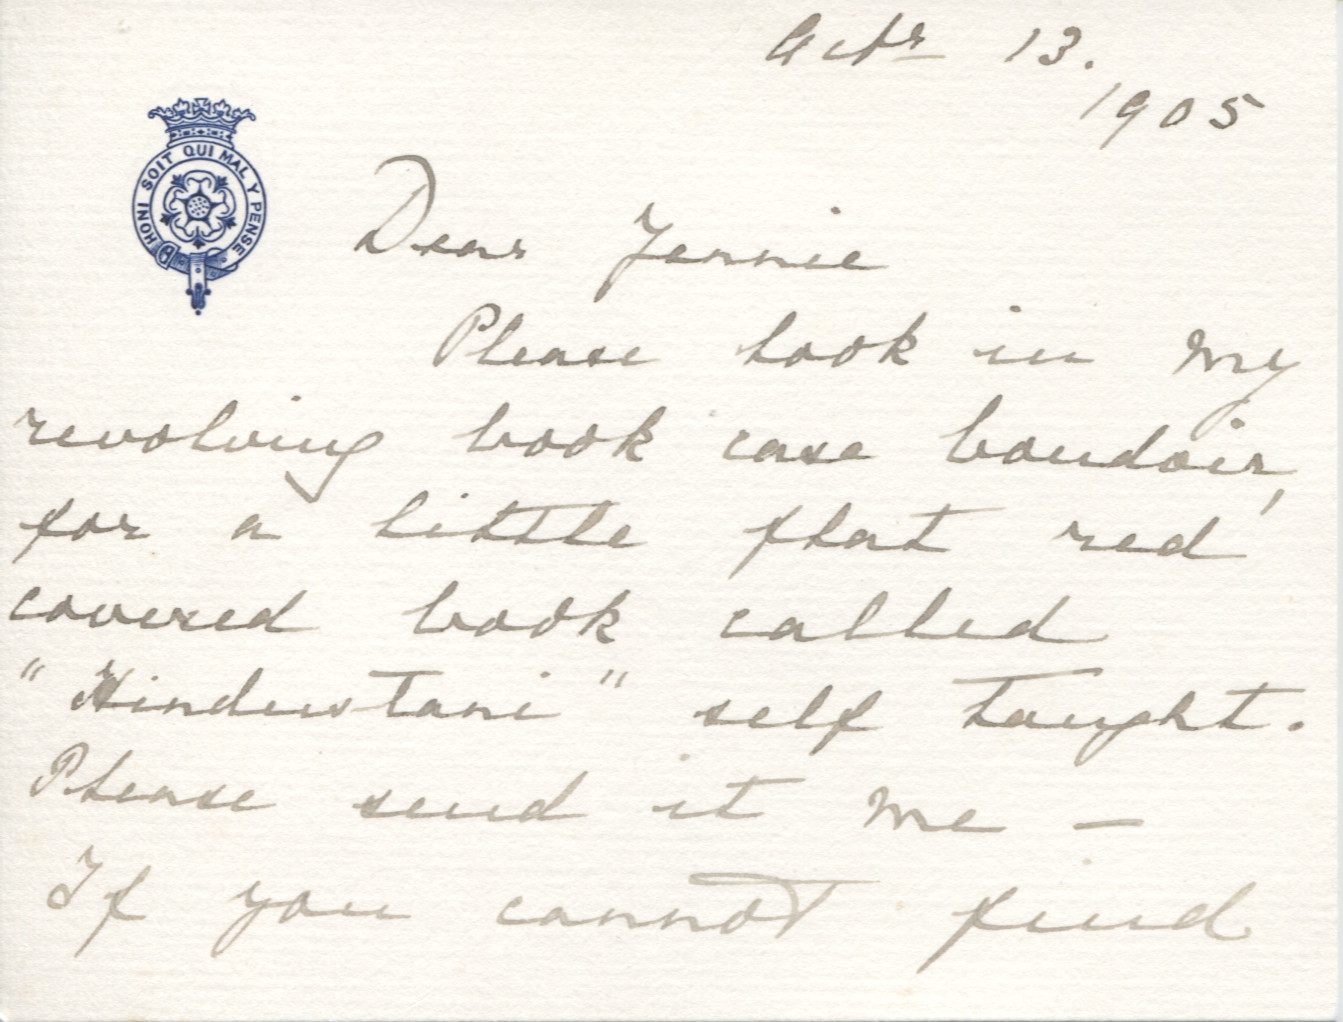 Octr 13.
1905
HONI SOIT QUI MAL Y PENSE
Dear Jennie
Please look in my
revolving book case boudoir,
for a little flat red
covered book called
"Hindustani" self taught.
Please send it me —
If you cannot find